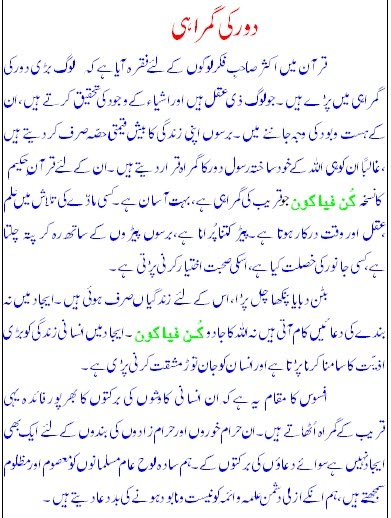 دور کی گمراہی
قرآن میں اکثر صاحب فکر لوگوں کے لئے فقرہ آیا ہے کہ لوگ بڑی دور کی
گمراہی میں پڑے ہیں۔ جو لوگ ذی عقل ہیں اور اشیاء کے وجود کی تحقیق کرتے ہیں، ان
کے ہست و بود کی وجہ جاننے میں۔ برسوں اپنی زندگی کا بیش قیمتی حصّہ صرف کر دیتے ہیں
، غالباً ان کو ہی اللہ کے خود ساختہ رسول دور کا گمراہ قرار دیتے ہیں۔ ان کے لئے قرآن حکیم
کا نسخہ کُن فیاکون جو قریب کی گمراہی ہے، بہت آسان ہے۔ کسی مادّے کی تلاش میں علم
عقل اور وقت درکار ہوتا ہے۔ پیڑ کتنا پُرانا ہے، برسوں پیڑوں کے ساتھ رہ کر پتہ چلتا
ہے، کسی جانور کی خصلت کیا ہے، اسکی صحبت اختیار کرنی پڑتی ہے۔
بٹن دبایا پنکھا چل پڑا، اس کے لئے زندگیاں صرف ہوئی ہیں۔ ایجاد میں نہ
بندے کی دعائیں کام آتی ہیں نہ اللہ کا جادو کُن فیاکون۔ ایجاد میں انسانی زندگی کو بڑی
اذیّت کا سامنا کرنا پڑتا ہے اور انسان کو جان توڑ مشقت کرنی پڑی ہے۔
افسوس کا مقام یہ ہے کہ ان انسانی کاوشوں کی برکتوں کا بھر پور فائدہ یہی
قریب کے گمراہ اُٹھاتے ہیں۔ ان حرام خوروں اور حرام زادوں کی بندوں کے لئے ایک بھی
ایجاد نہیں ہے سوائے دعاؤں کی برکتوں کے۔ ہم سادہ لوح عام مسلمانوں کو معصوم اور مظلوم
سمجھتے ہیں، ہم انکے ازلی دشمن علمہ و ائمہ کو نیست و نابود ہونے کی بد دعا دیتے ہیں۔